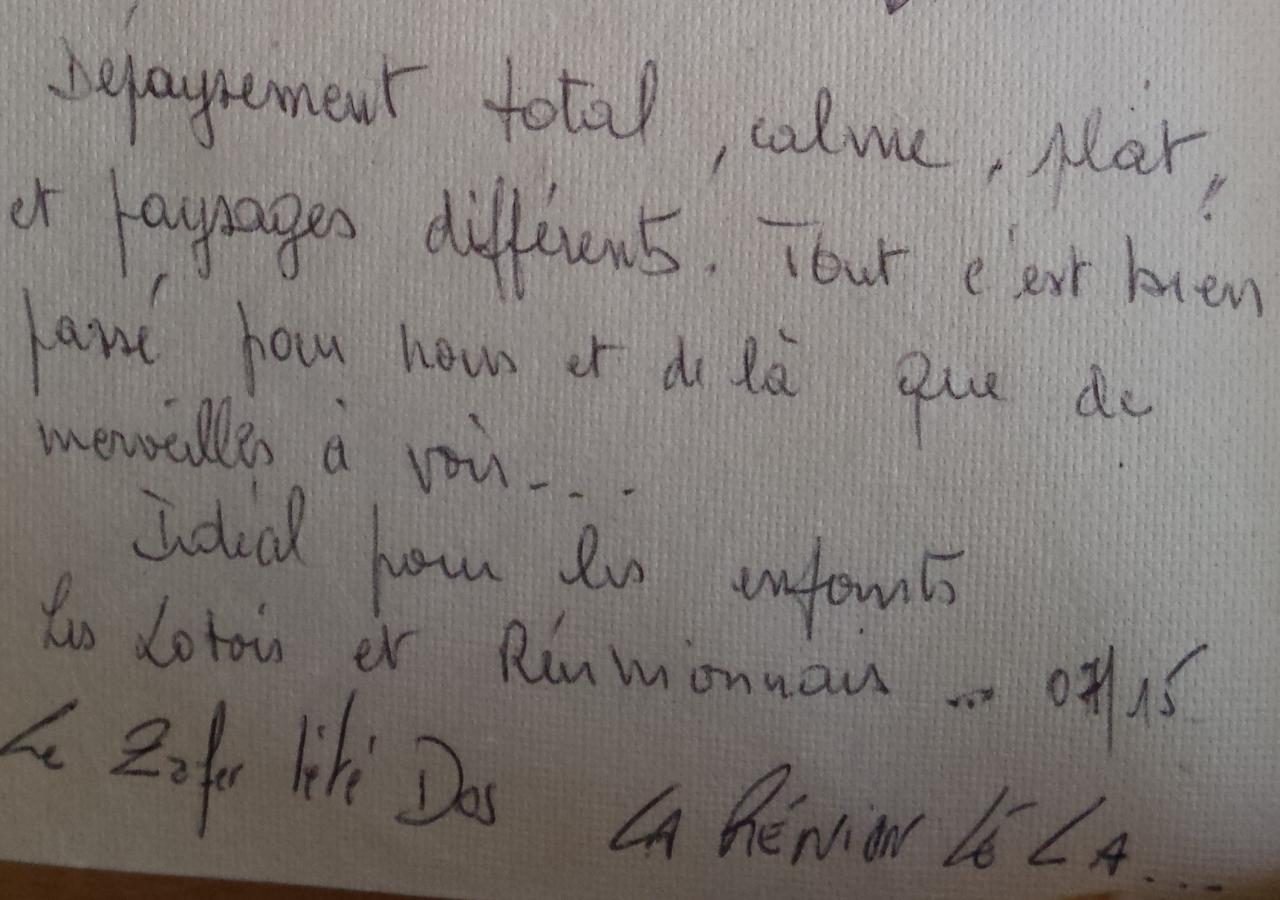 Dépaysement total, calme, plat,
et paysages différents. Tout c'est bien
passé pour nous et de là que de
merveilles à voir...
Idéal pour les enfants
Les Lotois et Réunnionnais ... 07/15
Le Zafer lété Dos LA RÉNION LÉ LA...